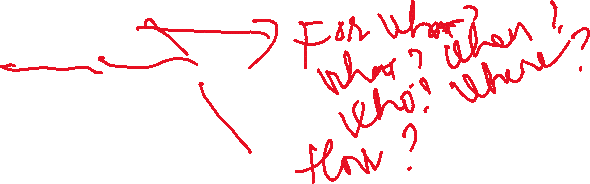 For who? 
what? when?
who? where?
How?